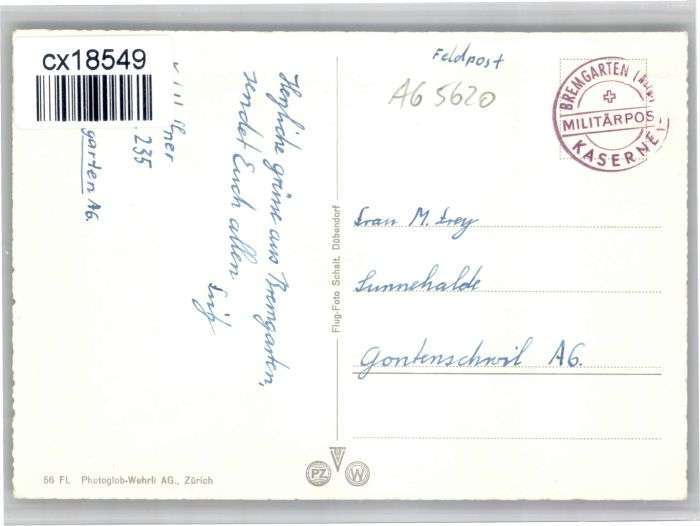 cx18549
Feldpost
AG 5620
BREMGARTEN
MILITÄRPOS
KASERNE
235
garten AG.
Herzliche grüsse aus Bremgarten,
sendet Euch allen
Flug-Foto Schalt, Dübendorf
Frau M. Frey
Sunnehalde
Gontenschwil AG.
PZ W
56 FL Photoglob-Wehrli AG., Zürich